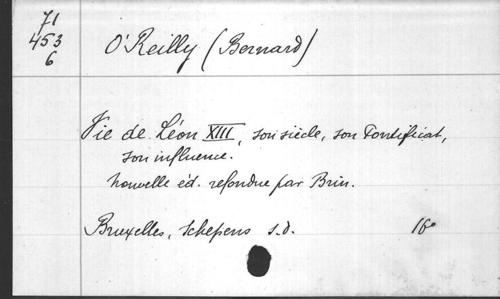 71
453
6
O'Reilly (Bernard)
Vie de Léon XIII, son siècle, son Pontificat,
son influence.
nouvelle éd. refondue par Brin.
Bruxelles, Schepens s.d. 16°